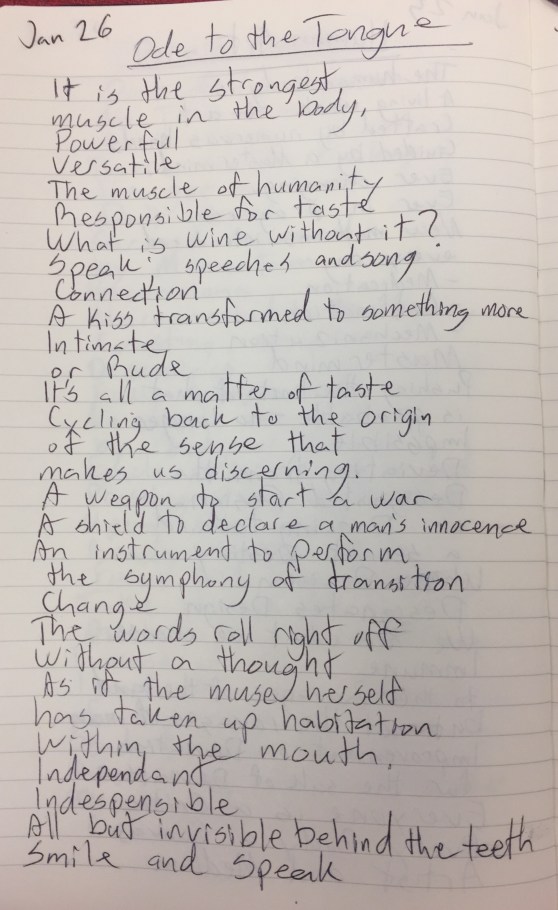 Jan 26
Ode to the Tongue
It is the strongest
muscle in the body,
Powerful
Versatile
The muscle of humanity
Responsible for taste
What is wine without it?
Speak, speeches and song
Connection
A kiss transformed to something more
Intimate
or Rude
It's all a matter of taste
Cycling back to the origin
of the sense that
makes us discerning.
A weapon to start a war
A shield to declare a man's innocence
An instrument to perform
the symphony of transition
Change
The words roll right off
without a thought
As if the muse herself
has taken up habitation
Within the mouth.
Independant
Indespensible
All but invisible behind the teeth
Smile and Speak